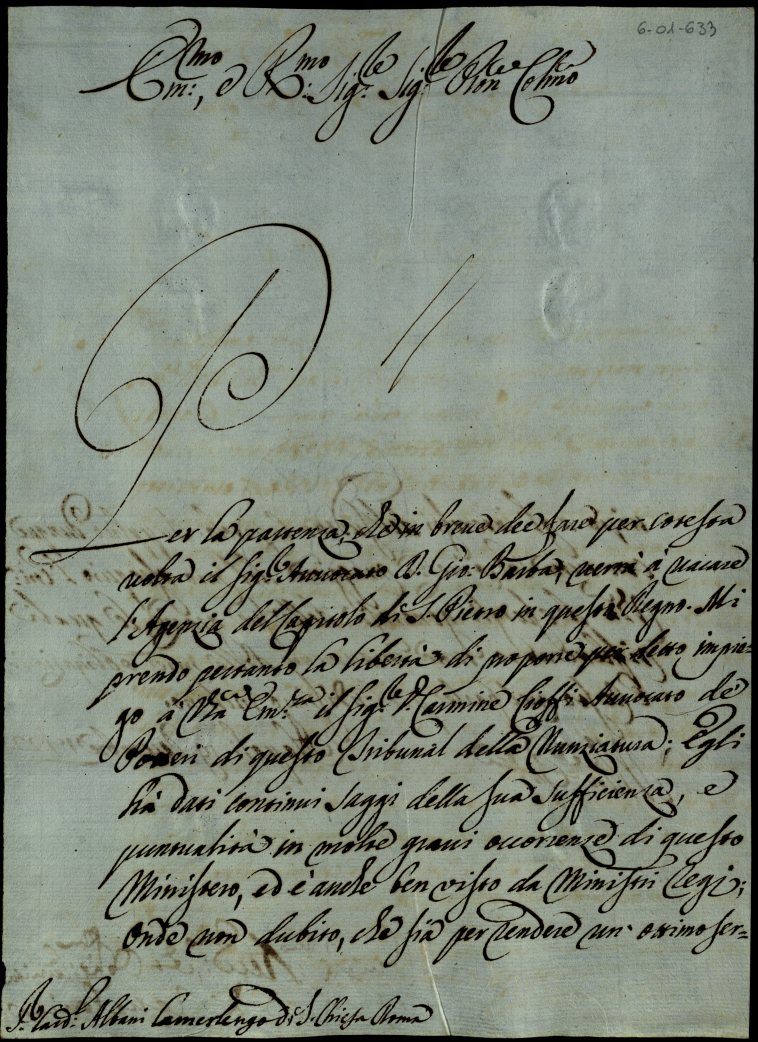 6-01-633
Em:mo, e R:mo Sig:re Sig:re Pron Colmo
Per la partenza, che in breve dee fare per cotesta
volta il Sig:re Avvocato D. Gio: Barba, verrà à vacare
l'Agenzia del Capitolo di S. Pietro in questo Regno. Mi
prendo pertanto la libertà di proporre per detto impie=
go à V:ra Em:za il Sig:re D. Carmine Cioffi Avvocato de'
Poveri di questo Tribunal della Nunziatura; Egli
hà dati continui saggi della sua sufficienza, e
puntualità in molte gravi occorrenze di questo
Ministero, ed è anche ben visto da Ministri Regj;
onde non dubito, che sia per rendere un' ottimo ser=
Card: Albani Camerlengo di S. Chiesa Roma